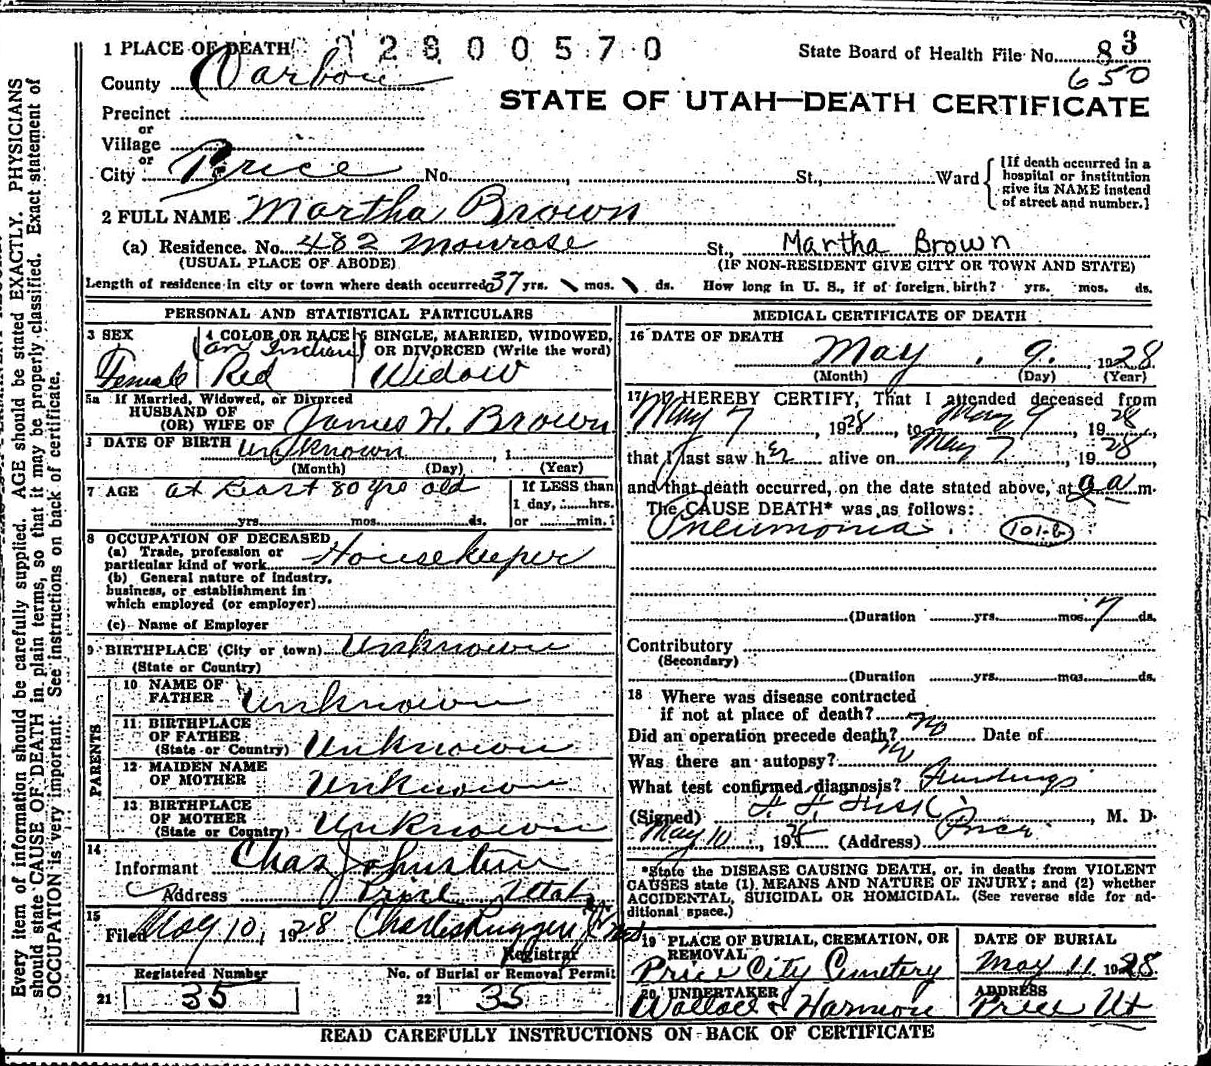 1 PLACE OF DEATH 2800570 State Board of Health File No. 83
County Carbon 650
STATE OF UTAH—DEATH CERTIFICATE
Precinct
or
Village
or
City Price No. , St., Ward
[If death occurred in a
hospital or institution
give its NAME instead
of street and number.]
2 FULL NAME Martha Brown
(a) Residence. No. 482 Monrose St., Martha Brown
(USUAL PLACE OF ABODE) (IF NON-RESIDENT GIVE CITY OR TOWN AND STATE)
Length of residence in city or town where death occurred 37 yrs. \ mos. \ ds. How long in U. S., if of foreign birth? yrs. mos. ds.
PERSONAL AND STATISTICAL PARTICULARS
3 SEX
Female
4 COLOR OR RACE
(an Indian)
Red
5 SINGLE, MARRIED, WIDOWED,
OR DIVORCED (Write the word)
Widow
5a If Married, Widowed, or Divorced
HUSBAND OF
(OR) WIFE OF James H. Brown
DATE OF BIRTH unknown , 1
(Month) (Day) (Year)
7 AGE at Least 80 yrs old
yrs. mos. ds.
If LESS than
1 day, hrs.
or min.?
8 OCCUPATION OF DECEASED
(a) Trade, profession or
particular kind of work Housekeeper
(b) General nature of industry,
business, or establishment in
which employed (or employer)
(c) Name of Employer
9 BIRTHPLACE (City or town) Unknown
(State or Country)
PARENTS
10 NAME OF
FATHER Unknown
11 BIRTHPLACE
OF FATHER
(State or Country) Unknown
12 MAIDEN NAME
OF MOTHER Unknown
13 BIRTHPLACE
OF MOTHER
(State or Country) Unknown
14
Informant Chas Johnston
Address Price Utah
15
Filed May 10, 1928
Registrar
Registered Number No. of Burial or Removal Permit
21 35 22 35
MEDICAL CERTIFICATE OF DEATH
16 DATE OF DEATH
May 9 1928
(Month) (Day) (Year)
17 I HEREBY CERTIFY, That I attended deceased from
May 7, 1928, to May 9, 1928,
that I last saw her alive on May 7, 1928,
and that death occurred, on the date stated above, at 9 a m.
The CAUSE DEATH* was as follows:
Pneumonia 101-b
(Duration yrs. mos. 7 ds.
Contributory
(Secondary)
(Duration yrs. mos. ds.
18 Where was disease contracted
if not at place of death?
Did an operation precede death? no Date of
Was there an autopsy? no
What test confirmed diagnosis? Findings
(Signed) F. F. Fisk, M. D.
May 10, 1928 (Address) Price
*State the DISEASE CAUSING DEATH, or, in deaths from VIOLENT
CAUSES state (1) MEANS AND NATURE OF INJURY; and (2) whether
ACCIDENTAL, SUICIDAL OR HOMICIDAL. (See reverse side for ad-
ditional space.)
19 PLACE OF BURIAL, CREMATION, OR
REMOVAL
Price City Cemetery
DATE OF BURIAL
May 11 1928
20 UNDERTAKER
Wallace & Harmon
ADDRESS
Price Ut
READ CAREFULLY INSTRUCTIONS ON BACK OF CERTIFICATE
Every item of information should be carefully supplied. AGE should be stated EXACTLY. PHYSICIANS
should state CAUSE OF DEATH in plain terms, so that it may be properly classified. Exact statement of
OCCUPATION is very important. See instructions on back of certificate.